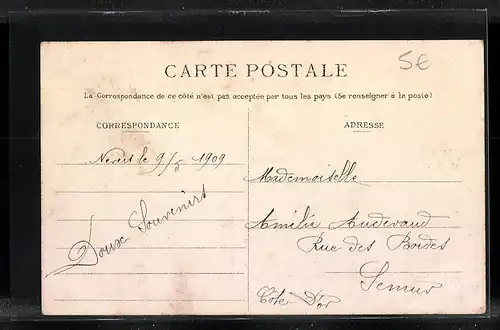 5€
CARTE POSTALE
La Correspondance de ce côté n'est pas acceptée par tous les pays (Se renseigner à la poste)
CORRESPONDANCE
le 9/5 1909
Doux Souvenirs
ADRESSE
Mademoiselle
Amélie Audevaud
Rue des Bordes
Semur
Côte D'or